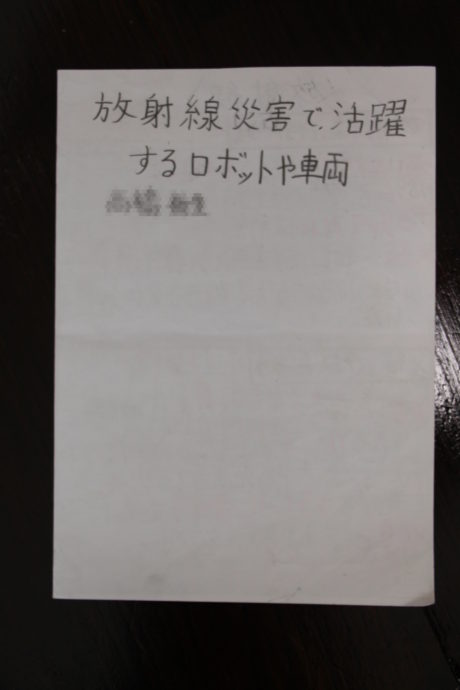 放射線災害で活躍
するロボットや車両